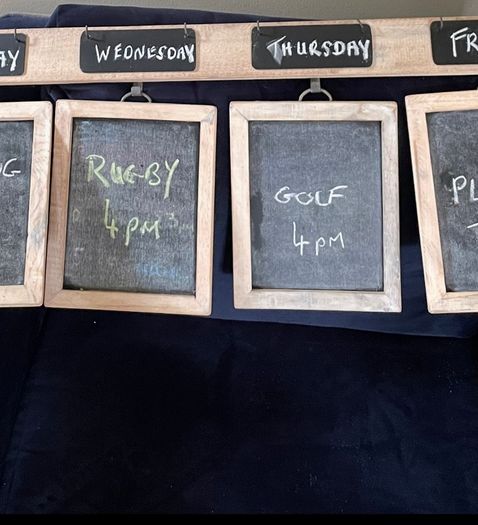 AY
WEDNESDAY
THURSDAY
FR
G
RUGBY
4 PM
GOLF
4 PM
PL